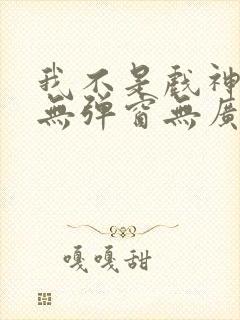 我不是戲神
無彈窗無廣
嘎嘎甜